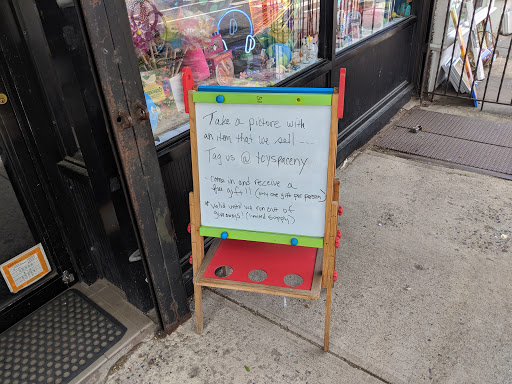 Take a picture with
an item that we sell ...
Tag us @ toyspaceny
- come in and receive a
free gift!! (only one gift per person)
* valid until we run out of
giveaways! (limited supply)